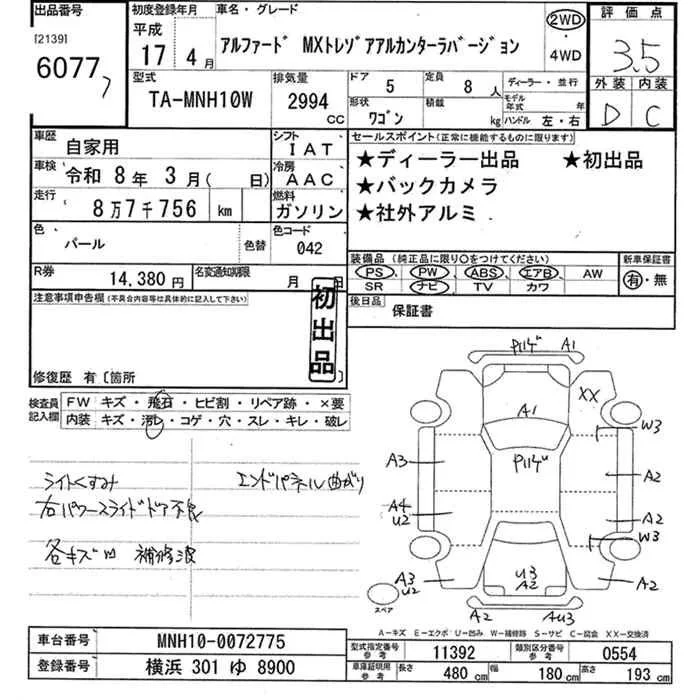 出品番号
[2139]
6077
7
初度登録年月
平成
17 4月
車名・グレード
アルファード MXトレゾアアルカンターラバージョン
2WD
・
4WD
評価点
3.5
外装 内装
D C
型式
TA-MNH10W
排気量
2994 CC
ドア 5
定員 8 人
形状 ワゴン
積載 kg
ディーラー・並行
モデル年式 年
ハンドル 左・右
車歴 自家用
シフト IAT
車検 令和 8年 3月( 日)
冷房 AAC
走行 8万7千756 km
燃料 ガソリン
色 パール 色替
色コード 042
R券 14,380円
名変通知期限 月 日
セールスポイント(正常に機能するものに限ります)
★ディーラー出品 ★初出品
★バックカメラ
★社外アルミ
装備品(純正品に限り○をつけてください)
PS・PW・ABS・エアB・AW
SR ナビ TV カワ
新車保証書
有・無
後日品 保証書
注意事項申告欄(不具合内容等は具体的に記入して下さい)
初出品
修復歴 有〔箇所 〕
検査員記入欄
FW キズ・飛石・ヒビ割・リペア跡・×要
内装 キズ・汚レ・コゲ・穴・スレ・キレ・破レ
ライトくすみ
エンドパネル曲がり
右パワースライドドア不良
各キズ凹 補修波
P11ゲ A1
XX
A1
W3
P11ゲ
A3
A2
A4
U2
A2
W3
A3
U2
U3
A2
A2
スペア
A2 AU3
A-キズ E-エクボ U-凹み W-補修跡 S-サビ C-腐食 XX-交換済
車台番号 MNH10-0072775
登録番号 横浜 301 ゆ 8900
型式指定番号 参考 11392
類別区分番号 参考 0554
車庫証明用 参考 長さ 480cm 幅 180cm 高さ 193cm